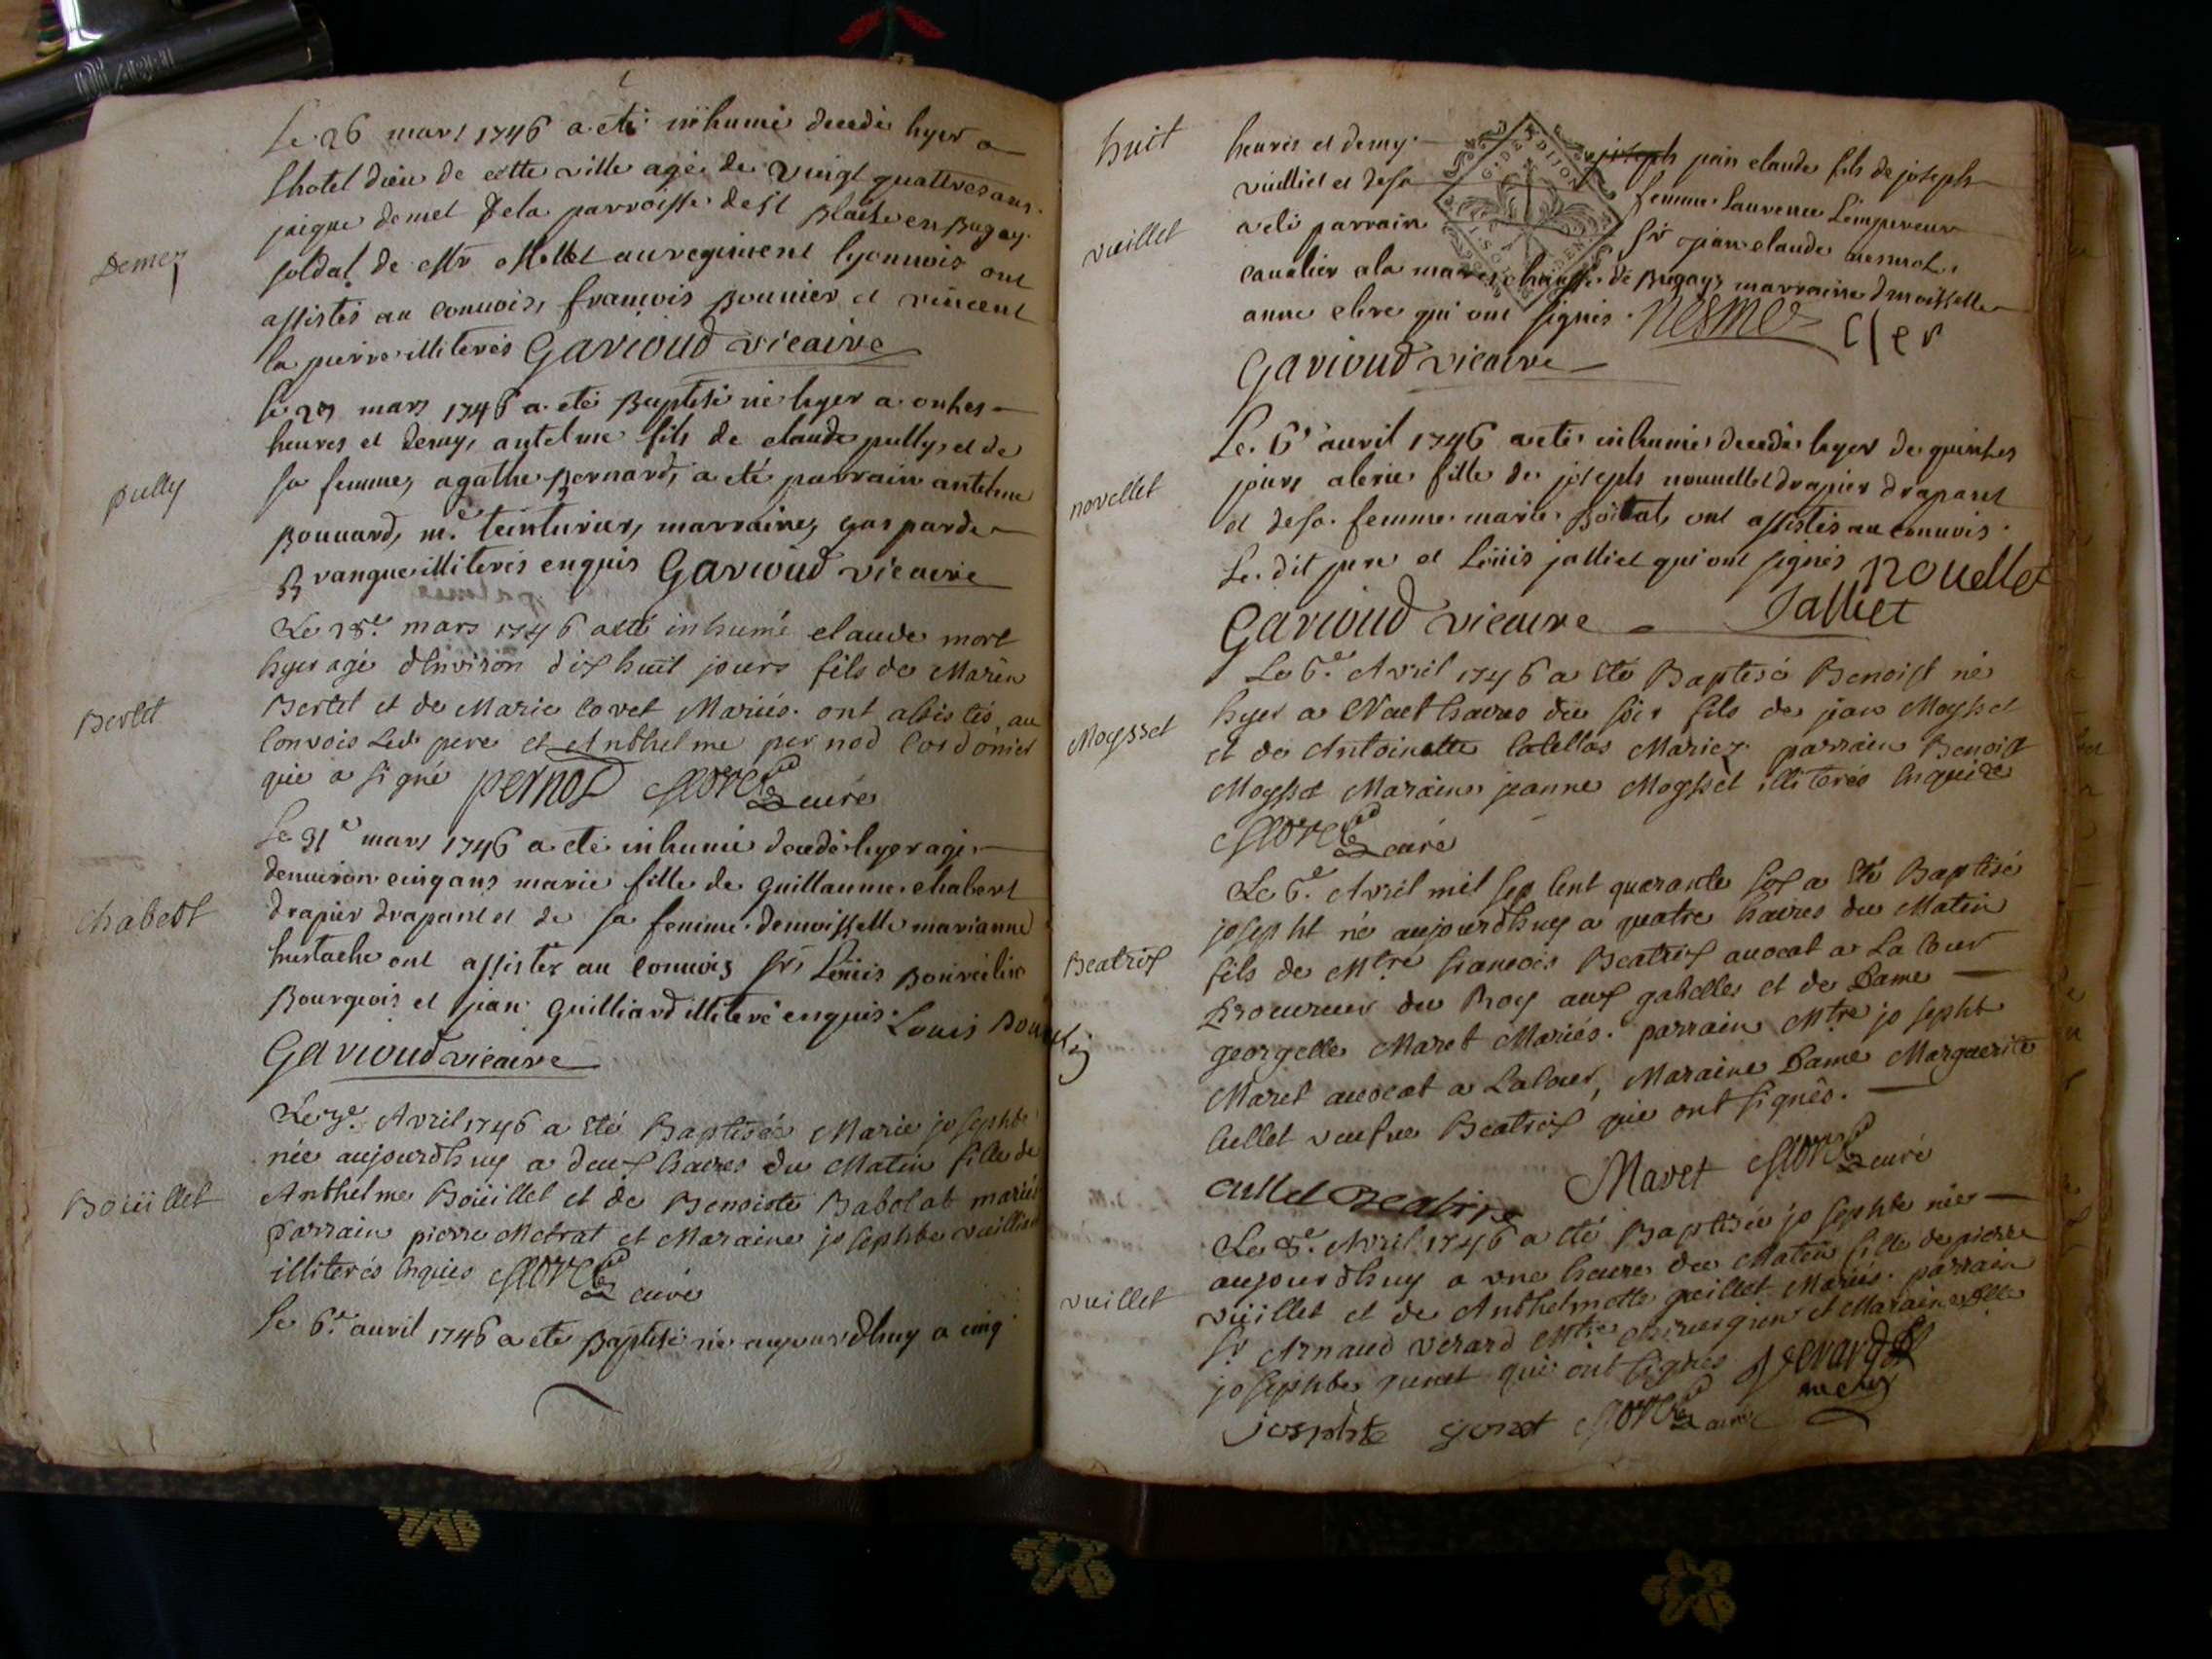 Le 26 mars 1746 a eté inhumé decedé hyer a
lhotel dieu de cette ville agé de vingt quattres ans
jaique demet de la parroisse de st Blaise en Bugey
Demey
soldat de Mr Mellet au regiment lyonnois ont
assistés au convois, françois Bounier et vincent
la pierre illiterés Garioud vicaire
Le 29 mars 1746 a eté Baptisé né hyer a onhes
heures et demy, antelme fils de claude pully, et de
pully
sa femme, agathe Bernard, a eté parrain antelme
Bouvard, me teinturier, marraine, gasparde
Branque illiterés enquis Garioud vicaire
Le 28e mars 1746 a eté inhumé claude mort
hyer agé d'environ dix huit jours fils de Marin
Bertet
Bertet et de Marie Covet Mariés. ont assistés au
Convois Led. pere et Anthelme pernod Cordonier
qui a signé pernod curé
Le 31e mars 1746 a eté inhumé decedé hyer agé
denuiron cinq ans marie fille de guillaume chabert
Chabert
drapier drapant et de sa femme demoisselle marianne
hustache ont assister au convois sr Loüis Bonveilin
Bourgeois et jean guilliard illiteré enquis. Louis
Garioud vicaire
Le 3e Avril 1746 a eté Baptisée Marie josephte
née aujourdhuy a deux heures du Matin fille de
Boüillet
Anthelme Boüillet et de Benoiste Babolat mariés
parrain pierre Metrat et Maraine josephte vuilliet
illiterés Enquis curé
Le 6e auril 1746 a eté Baptisé né aujourdhuy a cinq
huit
heures et demy. joseph jean claude fils de joseph
vuilliet et de sa femme Laurence Lempereur
vuillet
a eté parrain sr jean claude nesme
G. DE DIJON
caualier a la marechaussé de Bugey, marraine dmoisselle
anne clere qui ont signés. nesme Cler
Garioud vicaire
Le 6e auril 1746 a eté inhumé decedé hyer de quinhes
jours alerie fille de joseph nouuellet drapier drapant
novellet
et de sa femme marie Boittat, ont assistés au conuois
Le dit pere et Loüis jalliet qui ont signés nouellet
Garioud vicaire Jalliet
Le 6e Avril 1746 a eté Baptisé Benoist né
hyer a Neuf heures du soir fils de jean Moysset
Moysset
et de Antoinette Catellas Mariez. parrain Benoist
Moysset Maraine jeanne Moysset illiterés Enquis
curé
Le 6e Avril mil sep Cent quarante six a eté Baptisé
josepht né aujourdhuy a quatre heures du Matin
Beatrix
fils de Mtre francois Beatrix auocat a La Cour
Procureur du Roy aux gabelles et de Dame
georgette Maret Mariés. parrain Mtre josepht
Maret auocat a LaCour, Maraine Dame Marguerite
Cullet veufue Beatrix qui ont signés.
Maret curé
cullet Beatrix
Le 8e Avril 1746 a eté Baptisée josephte née
aujourdhuy a une heure du Matin fille de pierre
vuillet
vuillet et de Anthelmette peillet Mariés. parrain
Sr Arnaud verard Mtre chirurgien et Maraine Dlle
josephte genet qui ont signés verard
josphte genet curé